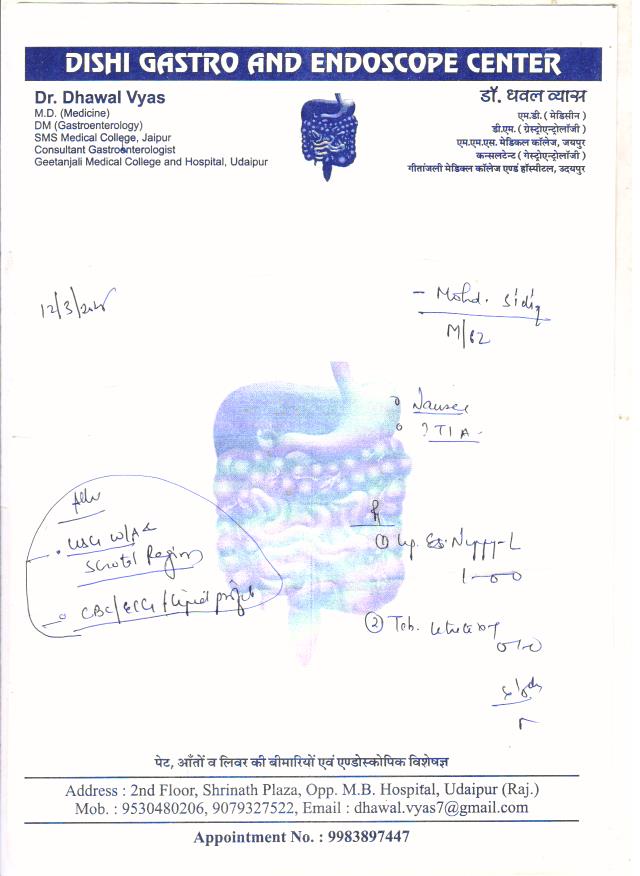 DISHI GASTRO AND ENDOSCOPE CENTER
Dr. Dhawal Vyas
M.D. (Medicine)
DM (Gastroenterology)
SMS Medical College, Jaipur
Consultant Gastroenterologist
Geetanjali Medical College and Hospital, Udaipur
डॉ. धवल व्यास
एम.डी. ( मेडिसीन )
डी.एम. ( ग्रेस्ट्रोएन्ट्रोलॉजी )
एम.एम.एस. मेडिकल कॉलेज, जयपुर
कन्सलटेन्ट ( गेस्ट्रोएन्ट्रोलॉजी )
गीतांजली मेडिकल कॉलेज एण्ड हॉस्पीटल, उदयपुर
12/3/
- Mohd. Sidiq
M/62
Nausea
? TIA
USG W/A &
Scrotal Region
CBC/ECG/Lipid profile
R
① Cap.
1-0-0
② Tab.
पेट, आँतों व लिवर की बीमारियों एवं एण्डोस्कोपिक विशेषज्ञ
Address : 2nd Floor, Shrinath Plaza, Opp. M.B. Hospital, Udaipur (Raj.)
Mob. : 9530480206, 9079327522, Email : dhawal.vyas7@gmail.com
Appointment No. : 9983897447